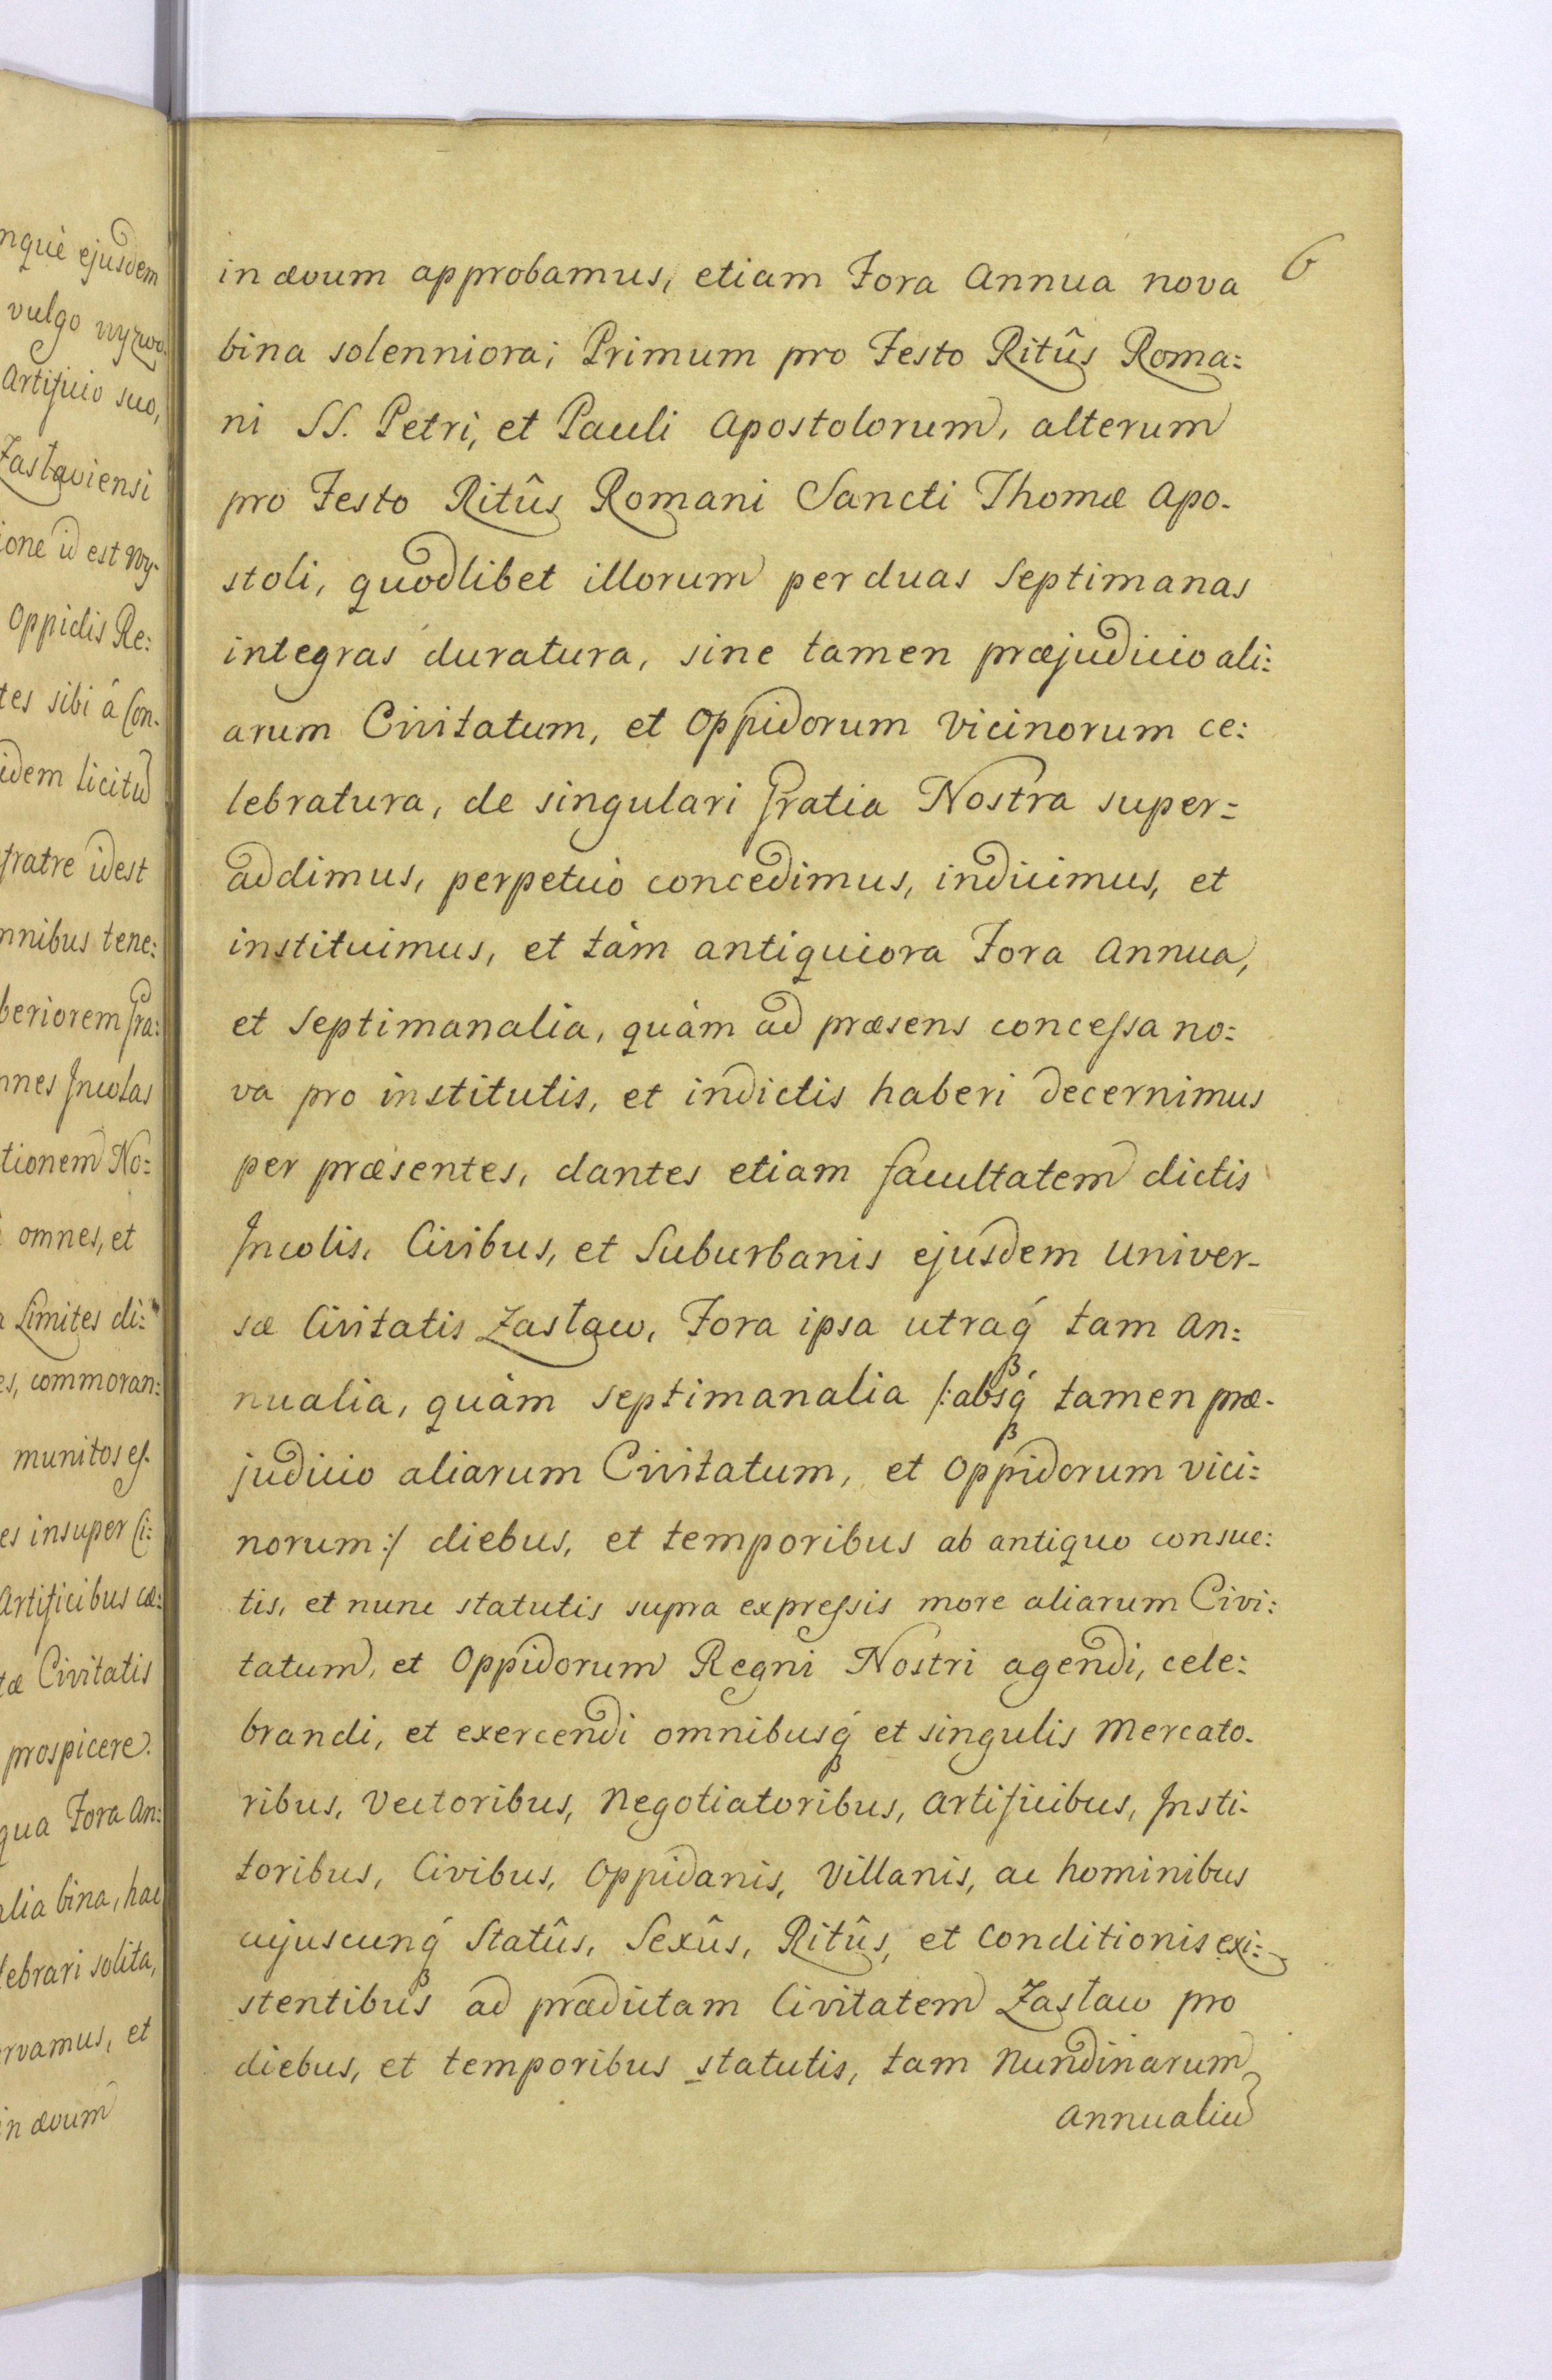 nquè ejusdem
vulgo wyzwo
Artificio suo,
Zaslaviensi
ione id est wy-
Oppidis Re:
tes sibi â Con-
idem licitũ
fratre idest
nnibus tene:
beriorem Gra:
nnes Incolas
tionem No:
omnes, et
Limites di:
es, commoran:
munitos es-
es insuper Ci:
Artificibus cæ:
tæ Civitatis
prospicere.
qua Fora An:
alia bina, hac
lebrari solita,
rvamus, et
in ævum
6
in ævum approbamus, etiam Fora Annua nova
bina solenniora; Primum pro Festo Ritûs Roma:
ni SS. Petri, et Pauli Apostolorum, alterum
pro Festo Ritûs Romani Sancti Thomæ Apo-
stoli, quodlibet illorum per duas Septimanas
integras duratura, sine tamen præjudicio ali:
arum Civitatum, et Oppidorum vicinorum ce:
lebratura, de singulari Gratia Nostra super=
addimus, perpetuò concedimus, indicimus, et
instituimus, et tàm antiquiora Fora Annua,
et Septimanalia, quàm ad præsens concessa no:
va pro institutis, et indictis haberi decernimus
per præsentes, dantes etiam facultatem dictis
Incolis, Civibus, et Suburbanis ejusdem univer-
sæ Civitatis Zasław, Fora ipsa utraq́ tam An:
nualia, quàm Septimanalia /:absq́ tamen præ-
judicio aliarum Civitatum, et Oppidorum vici:
norum:/ diebus, et temporibus ab antiquo consue:
tis, et nunc statutis supra expressis more aliarum Civi:
tatum, et Oppidorum Regni Nostri agendi, cele:
brandi, et exercendi omnibusq́ et singulis Mercato-
ribus, Vectoribus, Negotiatoribus, Artificibus, Insti-
toribus, Civibus, Oppidanis, Villanis, ac hominibus
cujuscunq́ Statûs, Sexûs, Ritûs, et Conditionis exi:
stentibus ad prædictam Civitatem Zasław pro
diebus, et temporibus statutis, tam Nundinarum
Annualiũ